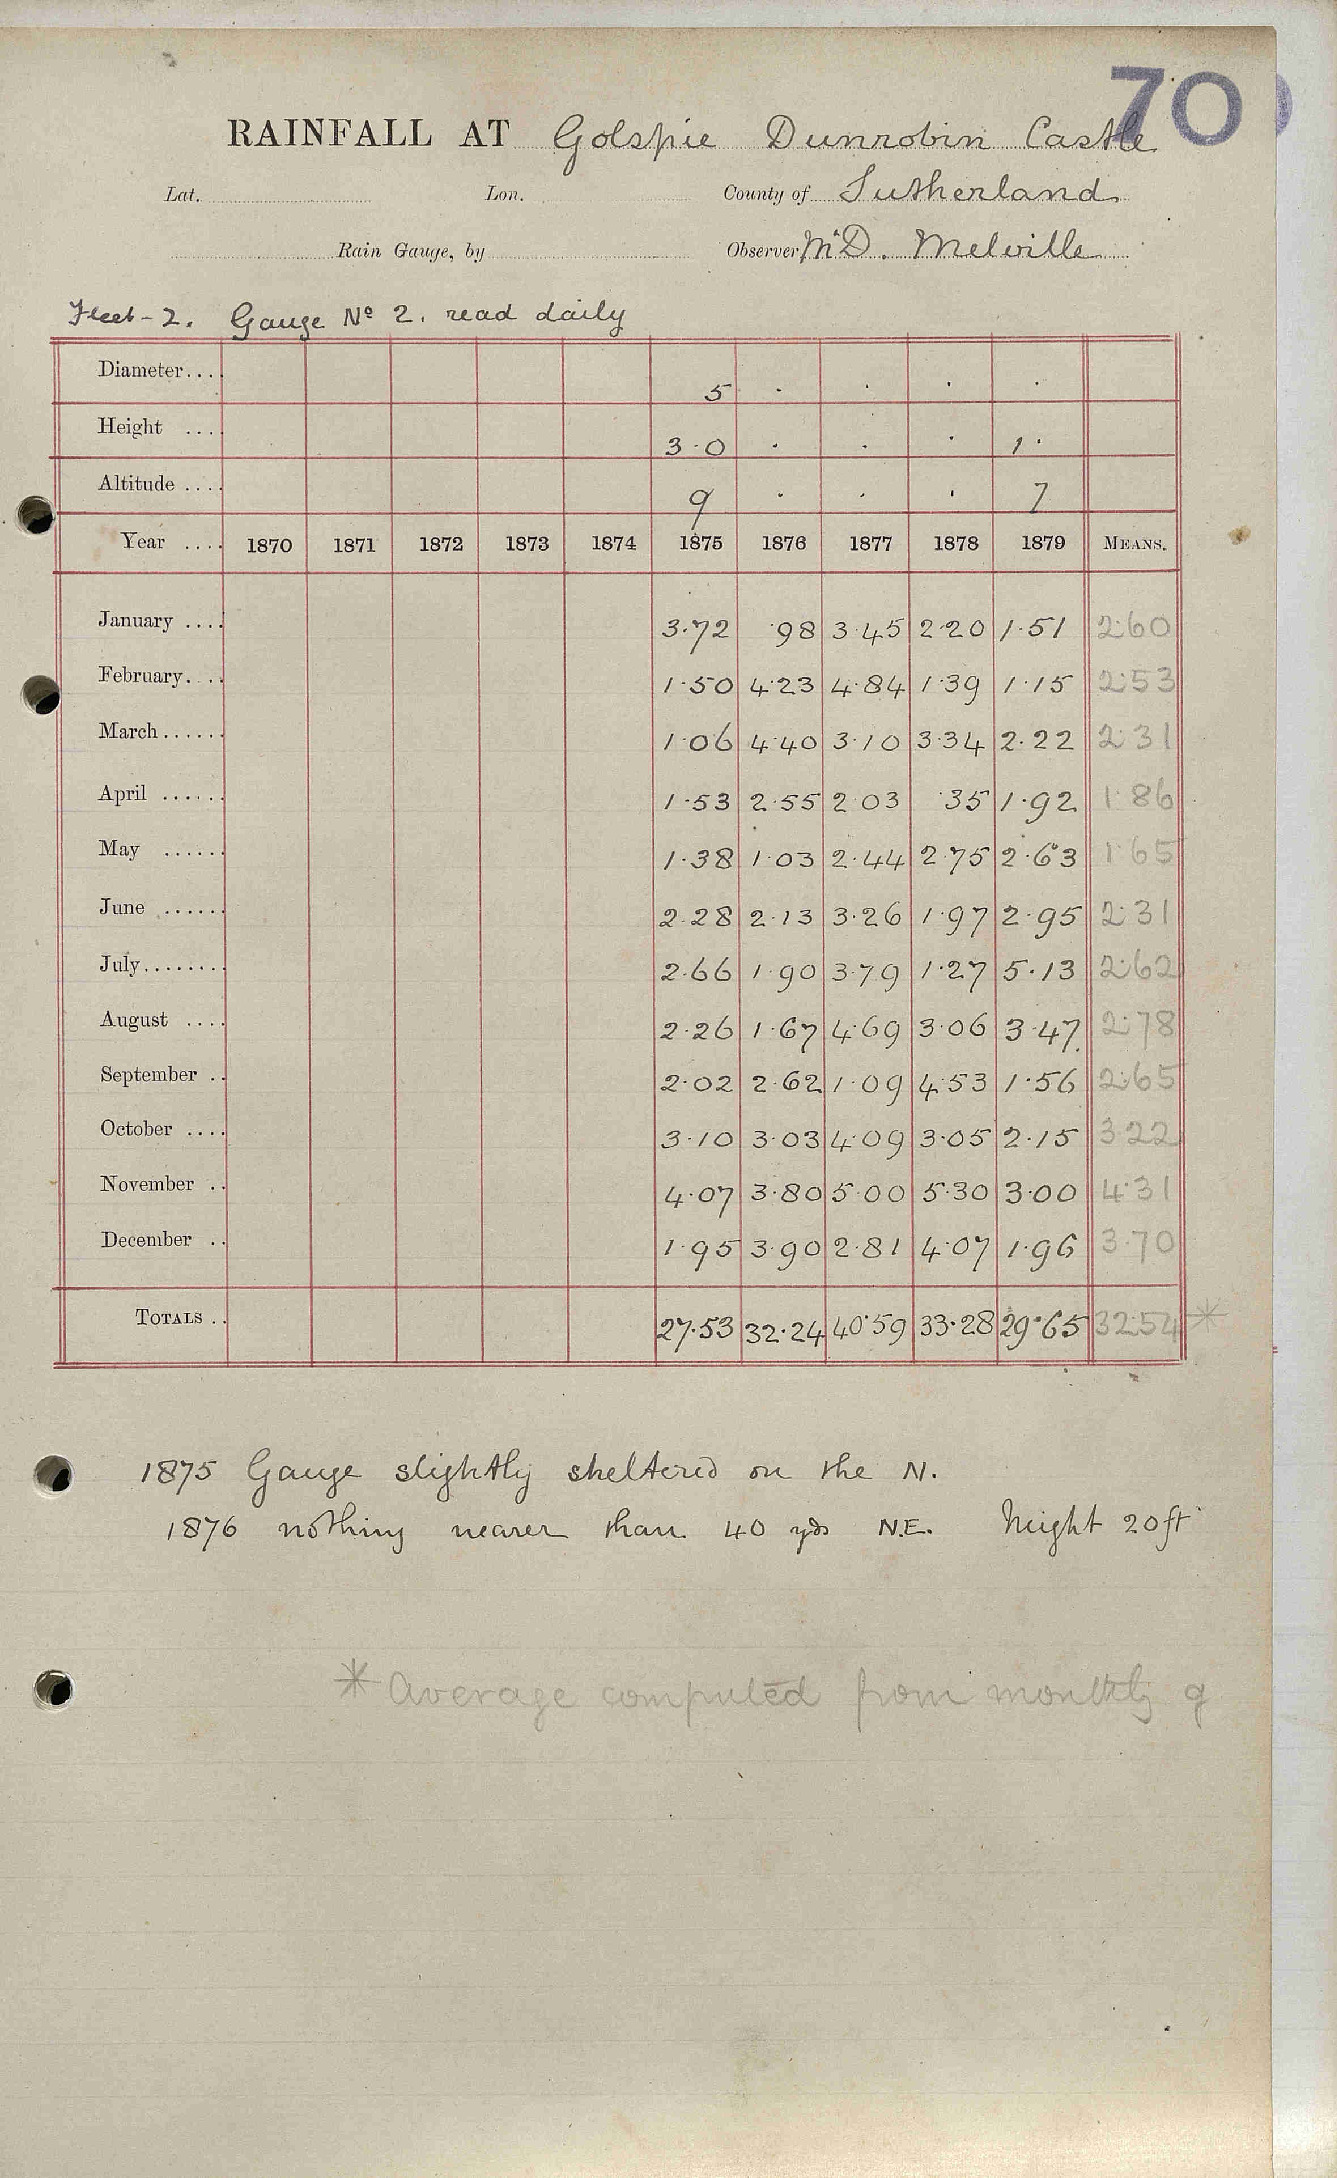 70
RAINFALL AT Golspie Dunrobin Castle
Lat. Lon. County of Sutherland
Rain Gauge, by Observer Mr D. Melville
Fleet-2. Gauge No 2. read daily
Diameter.... 5 · · · ·
Height .... 3·0 · · · 1·
Altitude .... 9 · · · 7
Year .... 1870 1871 1872 1873 1874 1875 1876 1877 1878 1879 MEANS.
January .... 3·72 ·98 3·45 2·20 1·51 2·60
February.... 1·50 4·23 4·84 1·39 1·15 2·53
March...... 1·06 4·40 3·10 3·34 2·22 2·31
April ...... 1·53 2·55 2·03 ·35 1·92 1·86
May ...... 1·38 1·03 2·44 2·75 2·63 1·65
June ...... 2·28 2·13 3·26 1·97 2·95 2·31
July........ 2·66 1·90 3·79 1·27 5·13 2·62
August .... 2·26 1·67 4·69 3·06 3·47 2·78
September .. 2·02 2·62 1·09 4·53 1·56 2·65
October .... 3·10 3·03 4·09 3·05 2·15 3·22
November .. 4·07 3·80 5·00 5·30 3·00 4·31
December .. 1·95 3·90 2·81 4·07 1·96 3·70
TOTALS .. 27·53 32·24 40·59 33·28 29·65 32·54 *
1875 Gauge slightly sheltered on the N.
1876 nothing nearer than 40 yds N.E. height 20ft
* Average computed from monthly